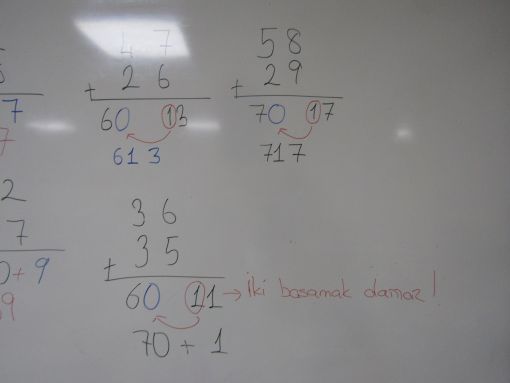 5
7
7
4 7
+ 2 6
60 13
61 3
58
+ 29
70 17
717
2
7
0 + 9
9
3 6
+ 3 5
60 11 → İki basamak olamaz!
70 + 1